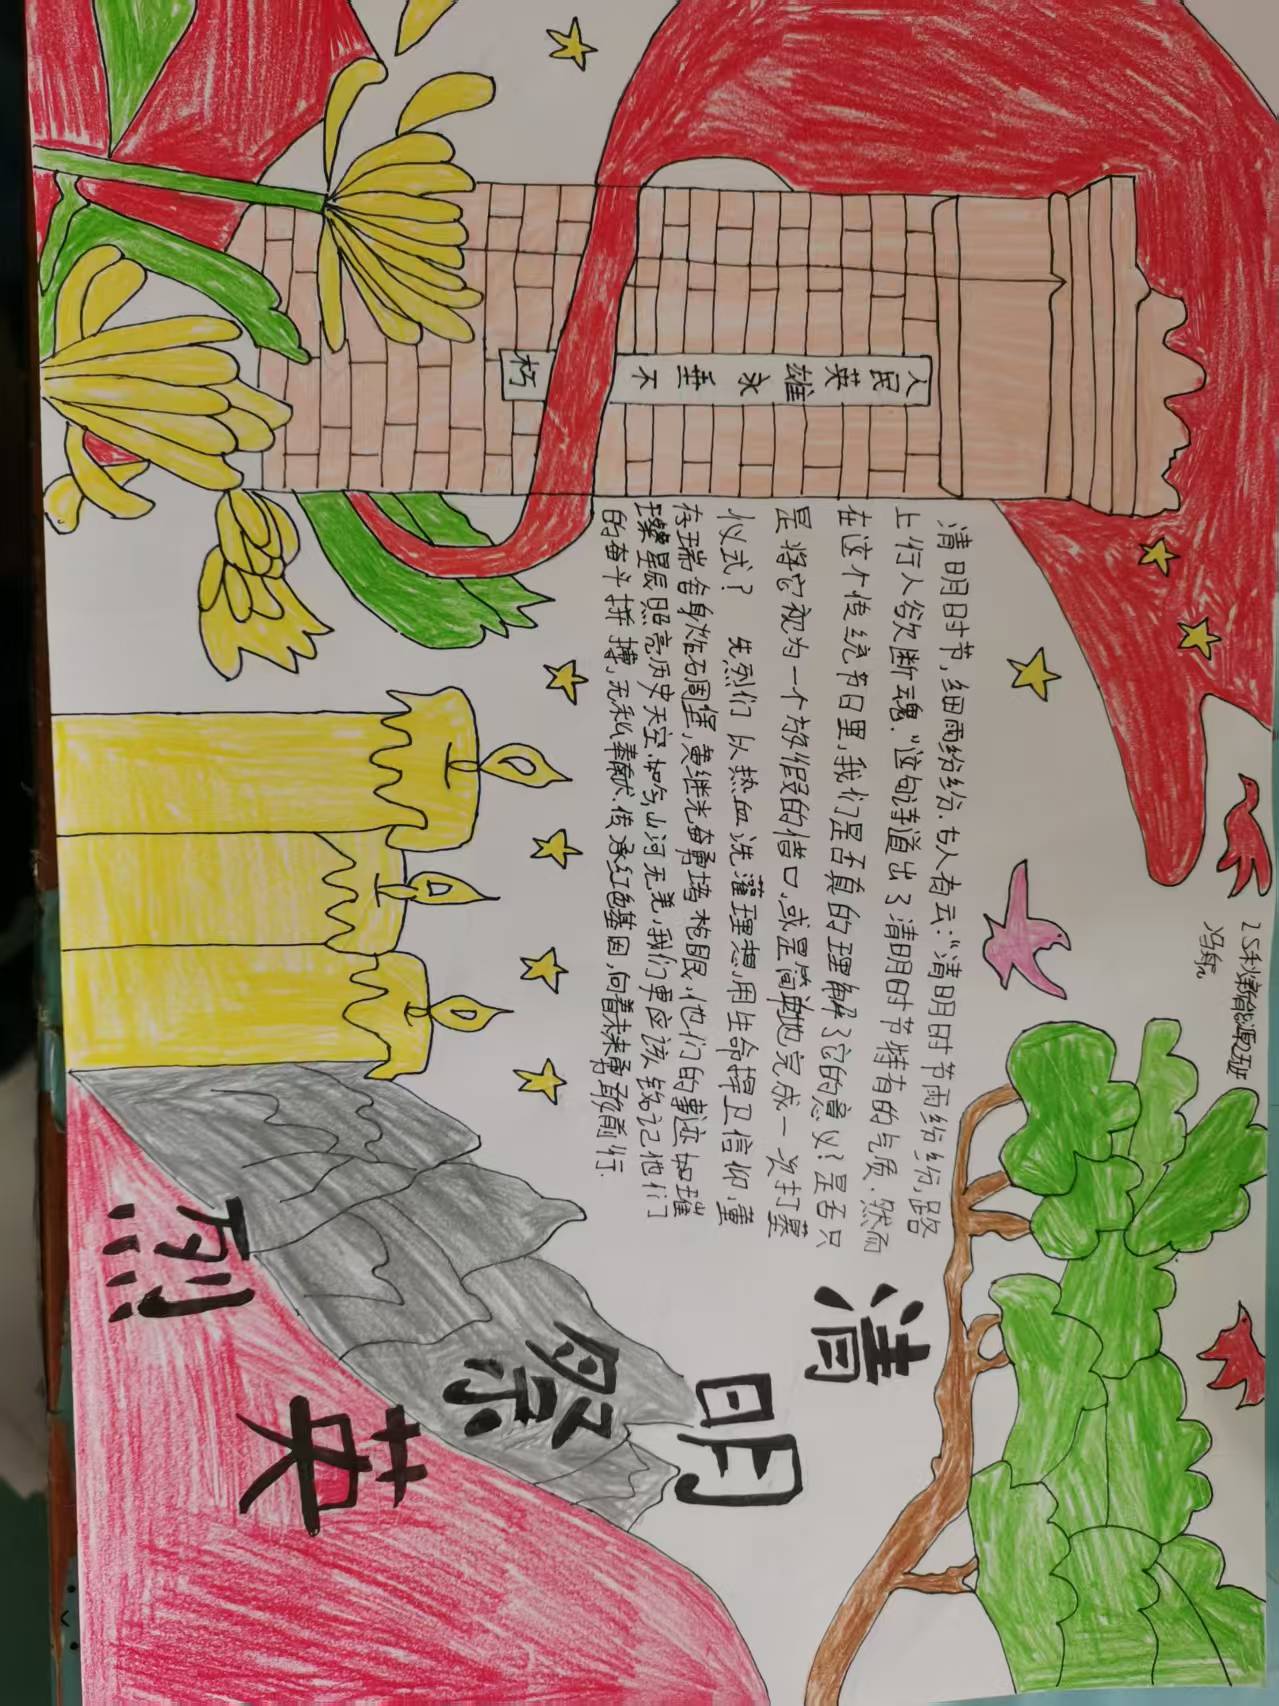 25秋新能源2班
人民英雄永垂不朽
清明时节,细雨纷纷.古人有云:“清明时节雨纷纷,路
上行人欲断魂.”这句诗道出了清明时节特有的气质.然而
在这个传统节日里,我们是否真的理解了它的意义?是否只
是将它视为一个放假的借口,或是简单地完成一次扫墓
仪式? 先烈们以热血浇灌理想,用生命捍卫信仰.董
存瑞舍身炸碉堡,黄继光奋勇堵枪眼.他们的事迹如璀
璨星辰照亮历史天空.如今,山河无恙,我们更应该铭记他们
的奋斗拼搏,无私奉献.传承红色基因,向着未来勇敢前行.
清明祭英烈